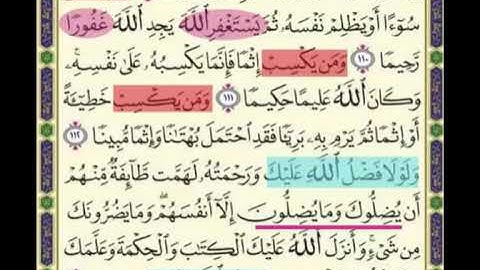 سُوٓءًا أَوْ يَظْلِمْ نَفْسَهُۥ ثُمَّ يَسْتَغْفِرِ ٱللَّهَ يَجِدِ ٱللَّهَ غَفُورًا
رَّحِيمًا ١١٠ وَمَن يَكْسِبْ إِثْمًا فَإِنَّمَا يَكْسِبُهُۥ عَلَىٰ نَفْسِهِۦۚ
وَكَانَ ٱللَّهُ عَلِيمًا حَكِيمًا ١١١ وَمَن يَكْسِبْ خَطِيٓـَٔةً
أَوْ إِثْمًا ثُمَّ يَرْمِ بِهِۦ بَرِيٓـًٔا فَقَدِ ٱحْتَمَلَ بُهْتَٰنًا وَإِثْمًا مُّبِينًا ١١٢
وَلَوْلَا فَضْلُ ٱللَّهِ عَلَيْكَ وَرَحْمَتُهُۥ لَهَمَّت طَّآئِفَةٌ مِّنْهُمْ
أَن يُضِلُّوكَ وَمَا يُضِلُّونَ إِلَّآ أَنفُسَهُمْۖ وَمَا يَضُرُّونَكَ
مِن شَىْءٍۚ وَأَنزَلَ ٱللَّهُ عَلَيْكَ ٱلْكِتَٰبَ وَٱلْحِكْمَةَ وَعَلَّمَكَ